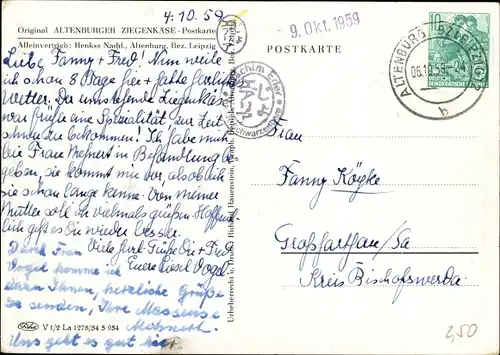 4.10.59
Original ALTENBURGER ZIEGENKÄSE-Postkarte
Alleinvertrieb: Henkss Nachf., Altenburg, Bez. Leipzig
- 9. Okt. 1959
POSTKARTE
ALTENBURG (BEZ LEIPZIG)
06.10.59
b
10
DEUTSCHE
DEMOKRATISCHE
Liebe Fanny + Fred! Nun weile
ich schon 8 Tage hier + habe herrliches
Wetter. Der umstehende Ziegenkäse
war früher eine Spezialität zur Zeit
schwer zu bekommen! Ich habe mich
bei Frau Mehnert in Behandlung be
geben, sie kommt mir vor, als ob ich
sie schon lange kenne. Von meiner
Mutter soll ich vielmals grüßen. Hoffent
lich geht es Dir wieder besser.
Viele herzl. Grüße Dir + Fred
Eure Liesel Vogel.
Durch Frau
Vogel komme ich
dazu Ihnen, herzliche Grüße
zu senden, Ihre Masseuse
Mehnert.
Uns geht es gut hier
Joachim Erler
Schwarzenberg
Frau
Fanny Köpke
Großharthau/Sa
Kreis Bischofswerda
V 1/2 La 1278/54 5 954
2,50